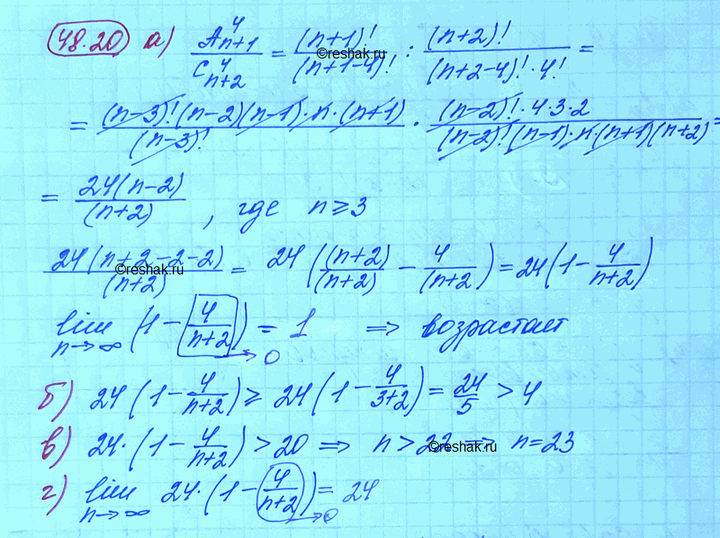 48.20 а) A⁴ₙ₊₁ / C⁴ₙ₊₂ = (n+1)! / (n+1-4)! : (n+2)! / ((n+2-4)!·4!) =
©reshak.ru
= (n-3)!(n-2)(n-1)·n·(n+1) / (n-3)! · (n-2)!·4·3·2 / ((n-2)!(n-1)·n·(n+1)(n+2)) =
= 24(n-2) / (n+2) , где n≥3
24(n+2-2-2) / (n+2) = 24((n+2)/(n+2) - 4/(n+2)) = 24(1 - 4/(n+2))
©reshak.ru
lim n→∞ (1 - 4/(n+2)) = 1 ⇒ возрастает
→0
б) 24(1 - 4/(n+2)) ≥ 24(1 - 4/(3+2)) = 24/5 > 4
в) 24·(1 - 4/(n+2)) > 20 ⇒ n > 22 ⇒ n=23
©reshak.ru
г) lim n→∞ 24·(1 - 4/(n+2)) = 24
→0